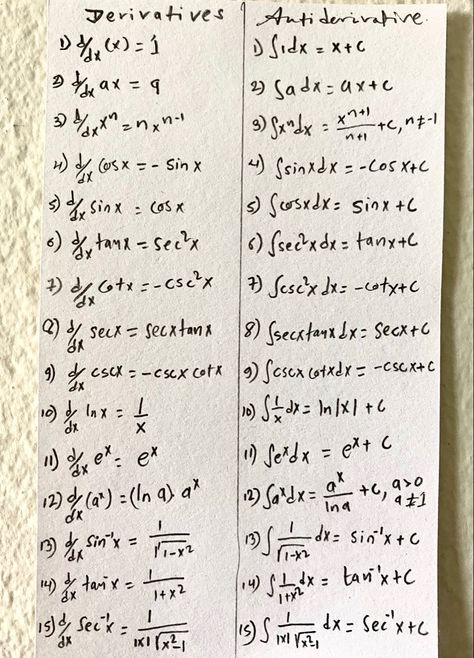 Derivatives
1) d/dx (x) = 1
2) d/dx ax = a
3) d/dx xⁿ = n xⁿ⁻¹
4) d/dx cos x = - sin x
5) d/dx sin x = cos x
6) d/dx tan x = sec²x
7) d/dx cot x = -csc²x
8) d/dx sec x = sec x tan x
9) d/dx csc x = -csc x cot x
10) d/dx ln x = 1/x
11) d/dx eˣ = eˣ
12) d/dx (aˣ) = (ln a) aˣ
13) d/dx sin⁻¹x = 1/√(1-x²)
14) d/dx tan⁻¹x = 1/(1+x²)
15) d/dx sec⁻¹x = 1/(|x|√(x²-1))
Antiderivative.
1) ∫1dx = x+c
2) ∫a dx = ax+c
3) ∫xⁿdx = xⁿ⁺¹/(n+1) +c, n≠-1
4) ∫sinxdx = -cos x+C
5) ∫cosxdx = sinx +C
6) ∫sec²x dx = tanx+C
7) ∫csc²x dx = -cotx+C
8) ∫secx tanx dx = secx+C
9) ∫cscx cotx dx = -cscx+C
10) ∫1/x dx = ln|x| +C
11) ∫eˣdx = eˣ+ C
12) ∫aˣdx = aˣ/ln a +C, a>0 a≠1
13) ∫ 1/√(1-x²) dx = sin⁻¹x + C
14) ∫ 1/(1+x²) dx = tan⁻¹x+C
15) ∫ 1/(|x|√(x²-1)) dx = sec⁻¹x+C